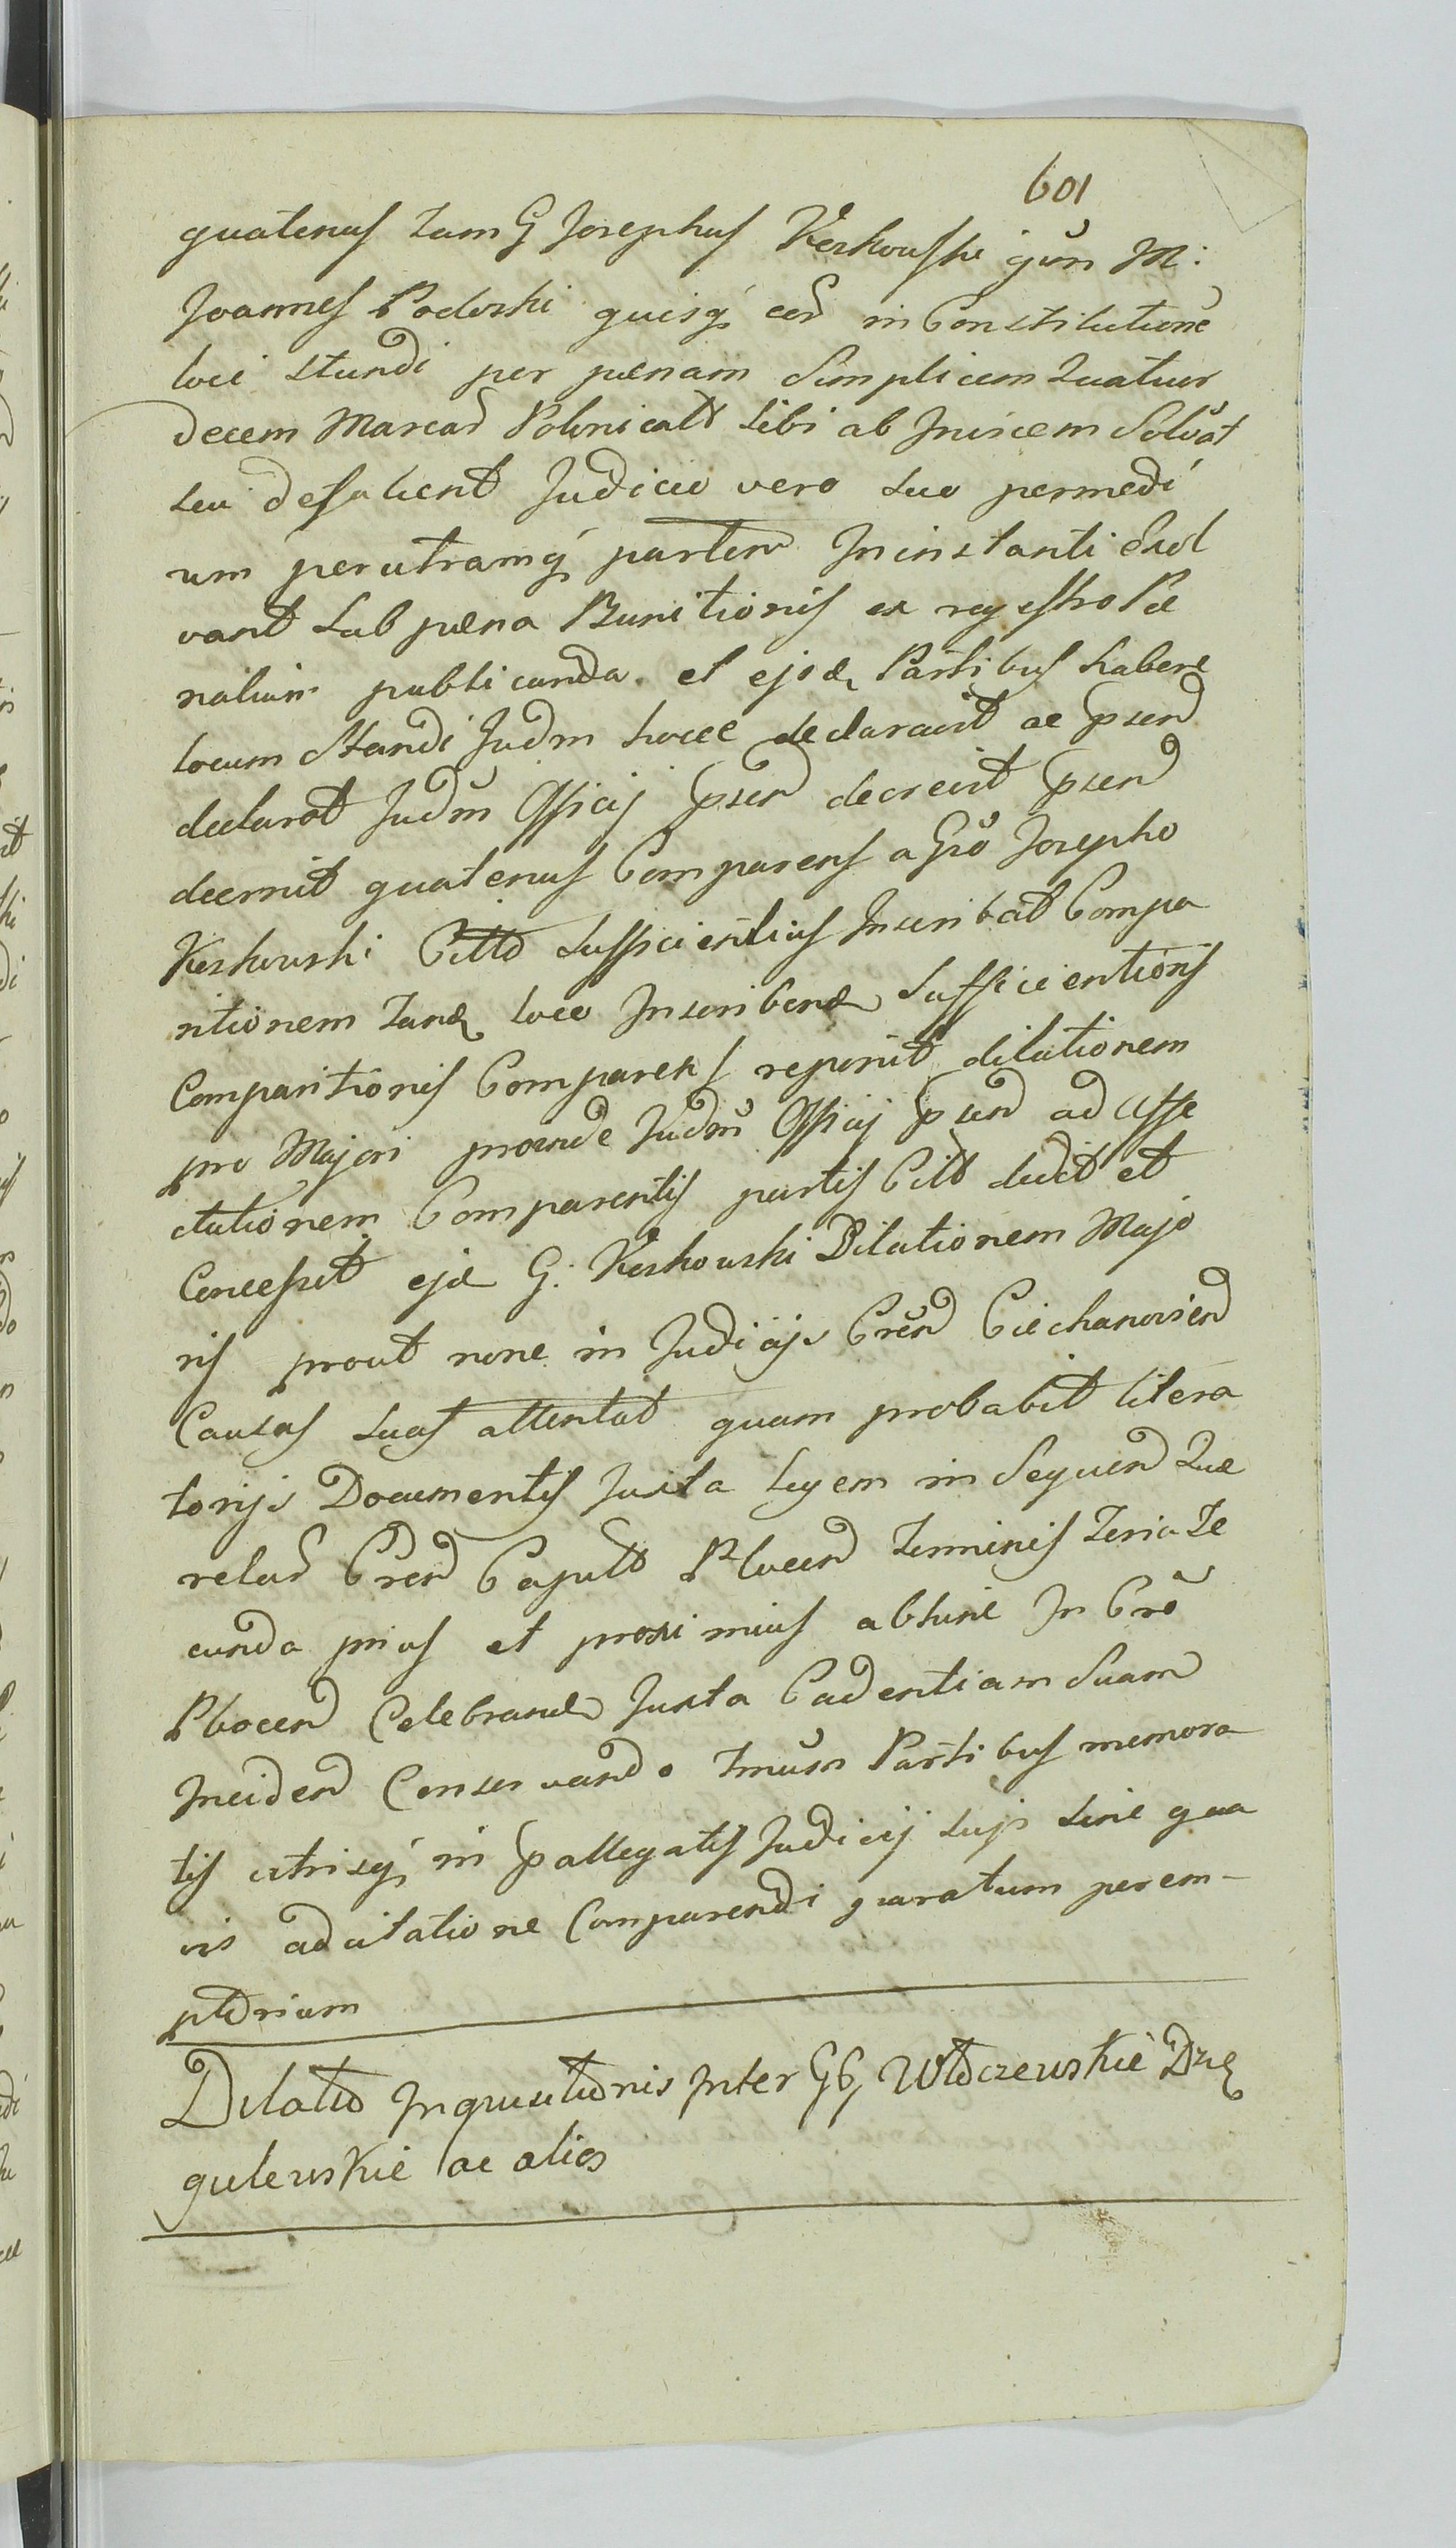 601
quatenus tam G Josephus Kerkouski qũn M:
Joannes Podoski quisq́ eod in Constitutione
loci standi per pœnam Simplicem Quatuor
decem Marcas Polonicalt sibi ab Inuicem Solũat
seu desoluent Judicio vero suo permedi
um perutramq́ partem Ininstanti Exol
vant Sub pœna Banitionis ex regestro Pœ
nalium publicanda et ejsd Partibus habere
locum Standi Judm hocce declarauit ac psend
declarat Judm̃ Officij psen decreuit psend
decernit quatenus Comparens a Gso Josepho
Kerkouski Citto sufficientius Inscribat Compa
ritionem tand loco Inscribend Sufficientions
Comparitionis Comparens reponit dilationem
pro Majori proinde Judm̃ Officij psend ad affe
ctationem Comparentis partis Citt dedit et
Concessit ejd G: Kerkouski Dilationem Majo
ris prout nonc in Judicijs Cren Ciechanoviend
Causas suas attentat quam probabit litera
torijs Documentis Juxta legem in Sequend Que
relar Cren Capult Plocen Terminis Feria Se
cunda prius et proximius abhinc In Cro
Plocen Celebrand Juxta Cadentiam Suam
Inciden Conseruando Tmũm Partibus memora
tis utrisq́ in pallegatis Judicij sujs sine qua
vis adcitatione Comparendi paratum perem-
ptorium
Dilatio Inquisitionis Inter GG Włoczewskie Dzię
gielewskie ac alios